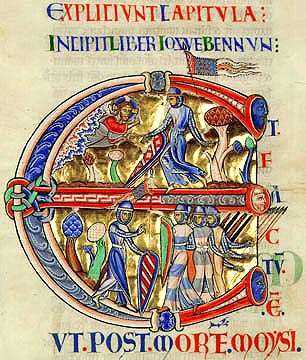 EXPLICIUNT CAPITULA:
INCIPIT LIBER IOSVE BENNUN:
E
T.
F
A
C
TV.
E.
VT. POST. MORTE. MOYSI.